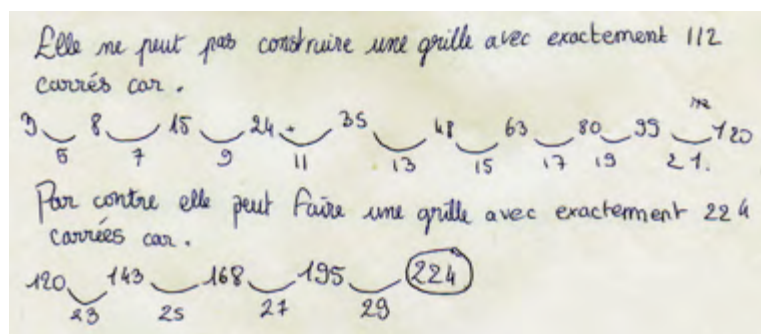 Elle ne peut pas construire une grille avec exactement 112
carrés car.
3 8 15 24 35 48 63 80 99 112 120
5 7 9 11 13 15 17 19 21.
Par contre elle peut faire une grille avec exactement 224
carrées car.
120 143 168 195 224
23 25 27 29